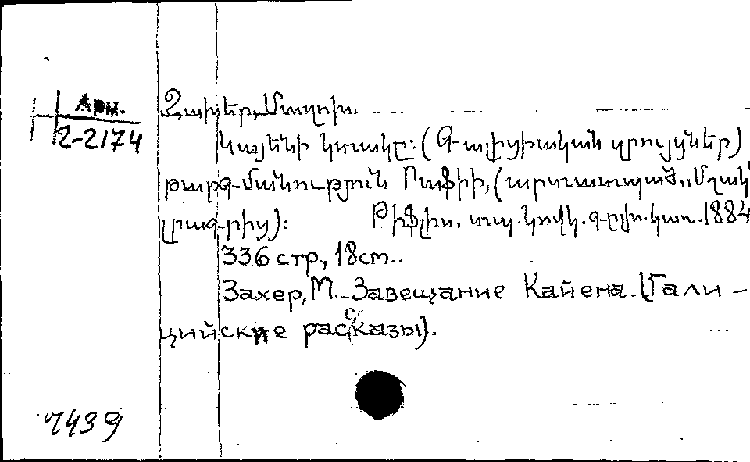 Арм.
2-2174
Զախեր, Մազոխ.
Կայենի կտակը: (Գալիցիական զրույցներ)
թարգմանություն Րաֆիի, (արտատպած „Մշակ"
լրագրից): Թիֆլիս, տպ. Կովկ. գրչխ. կառ. 1884
336 стр., 18 см..
Захер, М. Завещание Кайена. (Гали-
цийские рассказы).
7439